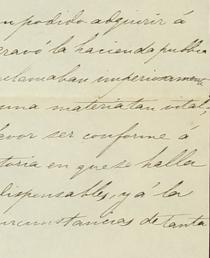 podido adquirir á
gravó la hacienda públi
clamaban imperiosamente
una materia tan vital,
ser conforme á
toria en que se halla
dispensables, y á la
ircunstancias de tanta